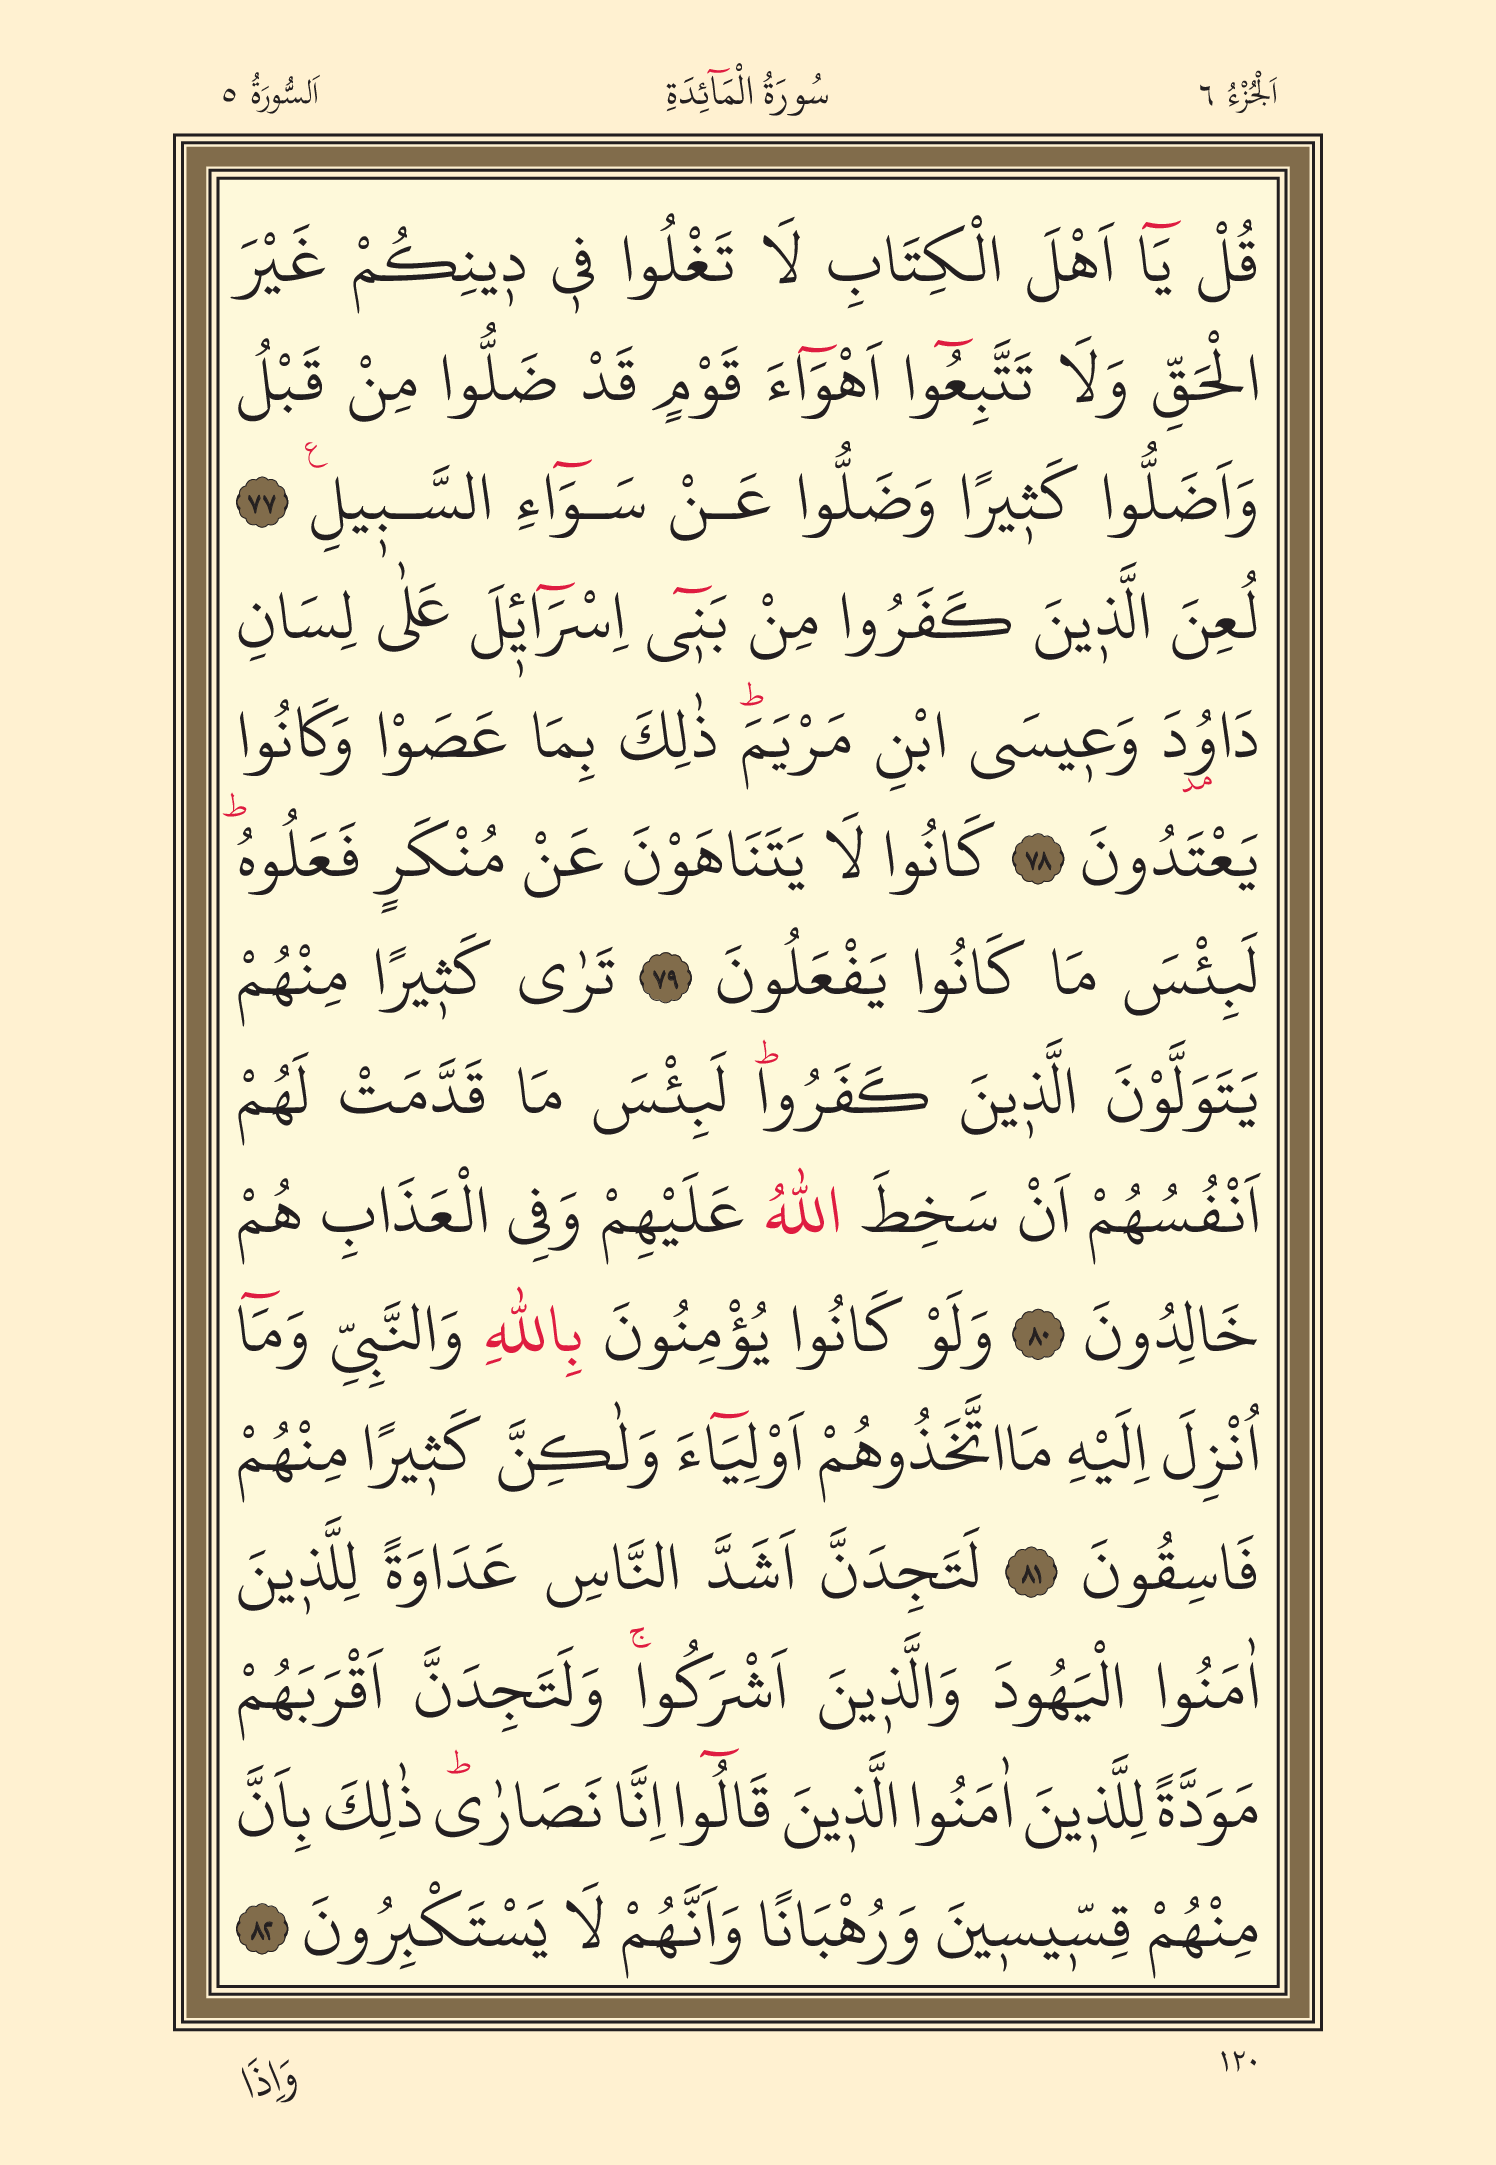 اَلْجُزْءُ ٦ سُورَةُ الْمَآئِدَةِ اَلسُّورَةُ ٥
قُلْ يَٓا اَهْلَ الْكِتَابِ لَا تَغْلُوا ف۪ي د۪ينِكُمْ غَيْرَ
الْحَقِّ وَلَا تَتَّبِعُٓوا اَهْوَٓاءَ قَوْمٍ قَدْ ضَلُّوا مِنْ قَبْلُ
وَاَضَلُّوا كَث۪يرًا وَضَلُّوا عَنْ سَوَٓاءِ السَّب۪يلِ ع ﴿٧٧﴾
لُعِنَ الَّذ۪ينَ كَفَرُوا مِنْ بَن۪ٓي اِسْرَٓائ۪لَ عَلٰى لِسَانِ
دَاوُ۫دَ وَع۪يسَى ابْنِ مَرْيَمَۜ ذٰلِكَ بِمَا عَصَوْا وَكَانُوا
مد
يَعْتَدُونَ ﴿٧٨﴾ كَانُوا لَا يَتَنَاهَوْنَ عَنْ مُنْكَرٍ فَعَلُوهُۜ
لَبِئْسَ مَا كَانُوا يَفْعَلُونَ ﴿٧٩﴾ تَرٰى كَث۪يرًا مِنْهُمْ
يَتَوَلَّوْنَ الَّذ۪ينَ كَفَرُواۜ لَبِئْسَ مَا قَدَّمَتْ لَهُمْ
اَنْفُسُهُمْ اَنْ سَخِطَ اللّٰهُ عَلَيْهِمْ وَفِي الْعَذَابِ هُمْ
خَالِدُونَ ﴿٨٠﴾ وَلَوْ كَانُوا يُؤْمِنُونَ بِاللّٰهِ وَالنَّبِيِّ وَمَٓا
اُنْزِلَ اِلَيْهِ مَااتَّخَذُوهُمْ اَوْلِيَٓاءَ وَلٰكِنَّ كَث۪يرًا مِنْهُمْ
فَاسِقُونَ ﴿٨١﴾ لَتَجِدَنَّ اَشَدَّ النَّاسِ عَدَاوَةً لِلَّذ۪ينَ
اٰمَنُوا الْيَهُودَ وَالَّذ۪ينَ اَشْرَكُواۚ وَلَتَجِدَنَّ اَقْرَبَهُمْ
مَوَدَّةً لِلَّذ۪ينَ اٰمَنُوا الَّذ۪ينَ قَالُٓوا اِنَّا نَصَارٰىۜ ذٰلِكَ بِاَنَّ
مِنْهُمْ قِسّ۪يس۪ينَ وَرُهْبَانًا وَاَنَّهُمْ لَا يَسْتَكْبِرُونَ ﴿٨٢﴾
١٢٠ وَاِذَا